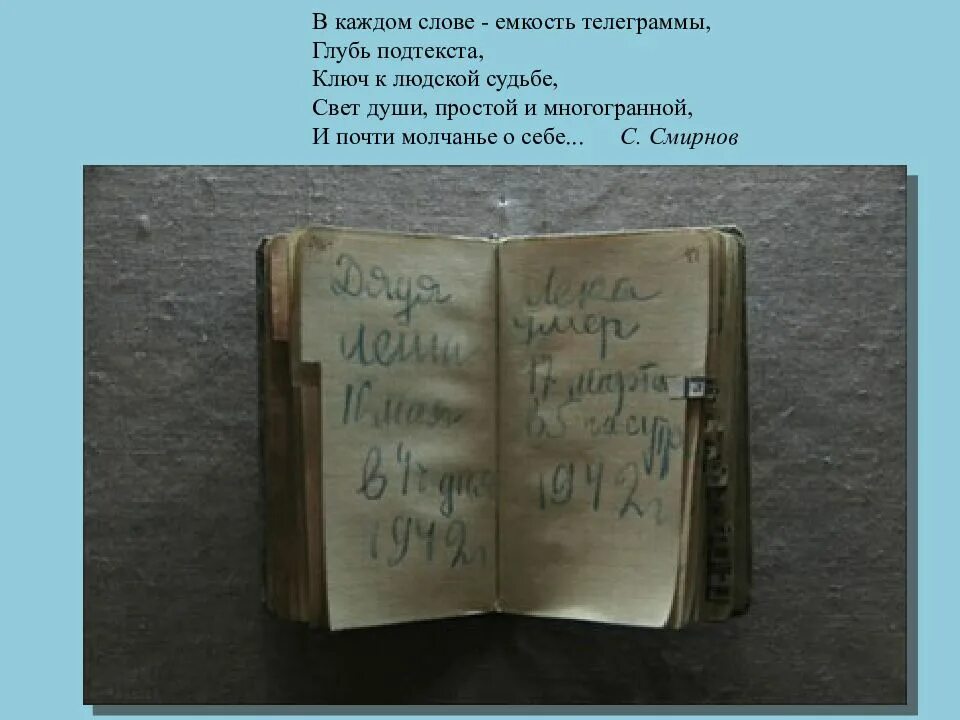 В каждом слове - емкость телеграммы,
Глубь подтекста,
Ключ к людской судьбе,
Свет души, простой и многогранной,
И почти молчанье о себе... С. Смирнов
Дядя
Леша
10 мая
в 4 ч дня
1942 г
Лека
умер
17 марта
в 5 час утр
1942 г